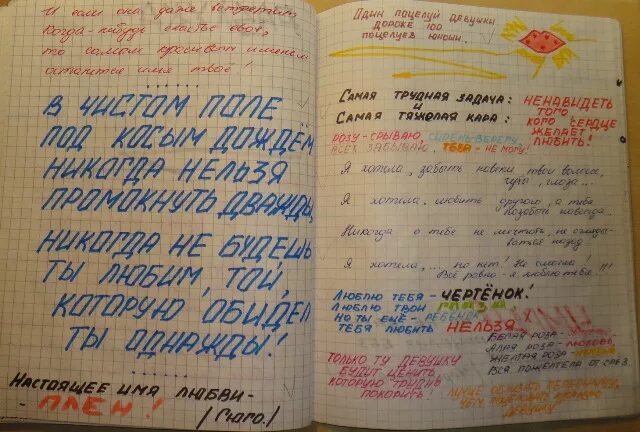 И если она даже встретит
когда-нибудь счастье своё,
то самым красивым именем
останется имя твоё!
В ЧИСТОМ ПОЛЕ
ПОД КОСЫМ ДОЖДЁМ
НИКОГДА НЕЛЬЗЯ
ПРОМОКНУТЬ ДВАЖДЫ,
НИКОГДА НЕ БУДЕШЬ
ТЫ ЛЮБИМ ТОЙ,
КОТОРУЮ ОБИДЕЛ
ТЫ ОДНАЖДЫ!
НАСТОЯЩЕЕ ИМЯ ЛЮБВИ-
- ПЛЕН! /Гюго./
ОДИН ПОЦЕЛУЙ ДЕВУШКИ
ДОРОЖЕ 100
ПОЦЕЛУЕВ ЮНОШИ.
САМАЯ ТРУДНАЯ ЗАДАЧА:
И
САМАЯ ТЯЖЁЛАЯ КАРА:
НЕНАВИДЕТЬ
ТОГО
КОГО СЕРДЦЕ
ЖЕЛАЕТ
ЛЮБИТЬ!
РОЗУ-СРЫВАЮ, СИРЕНЬ-БЕРЕГУ,
ВСЕХ ЗАБЫВАЮ, ТЕБЯ - НЕ МОГУ!
Я хотела, забыть навеки твои волосы,
губы, глаза...
Я хотела, любить другого, а тебя
позабыть навсегда...
Никогда о тебе не мечтать, не огляды-
ваться назад
Я хотела... но нет! Не смогла!
Всё равно - я люблю тебя!!!
ЛЮБЛЮ ТЕБЯ - ЧЕРТЁНОК!
ЛЮБЛЮ ТВОИ ГЛАЗА
НО ТЫ ЕЩЁ - РЕБЁНОК
ТЕБЯ ЛЮБИТЬ НЕЛЬЗЯ
БЕЛАЯ РОЗА -
АЛАЯ РОЗА - ЛЮБОВЬ,
ЖЁЛТАЯ РОЗА -
ВСЯ ПОЖЕЛТЕЛА ОТ СЛЁЗ
ТОЛЬКО ТУ ДЕВУШКУ
БУДУТ ЦЕНИТЬ
КОТОРУЮ ТРУДНО
ПОКОРИТЬ!
ЛУЧШЕ
ДЕВУШКУ